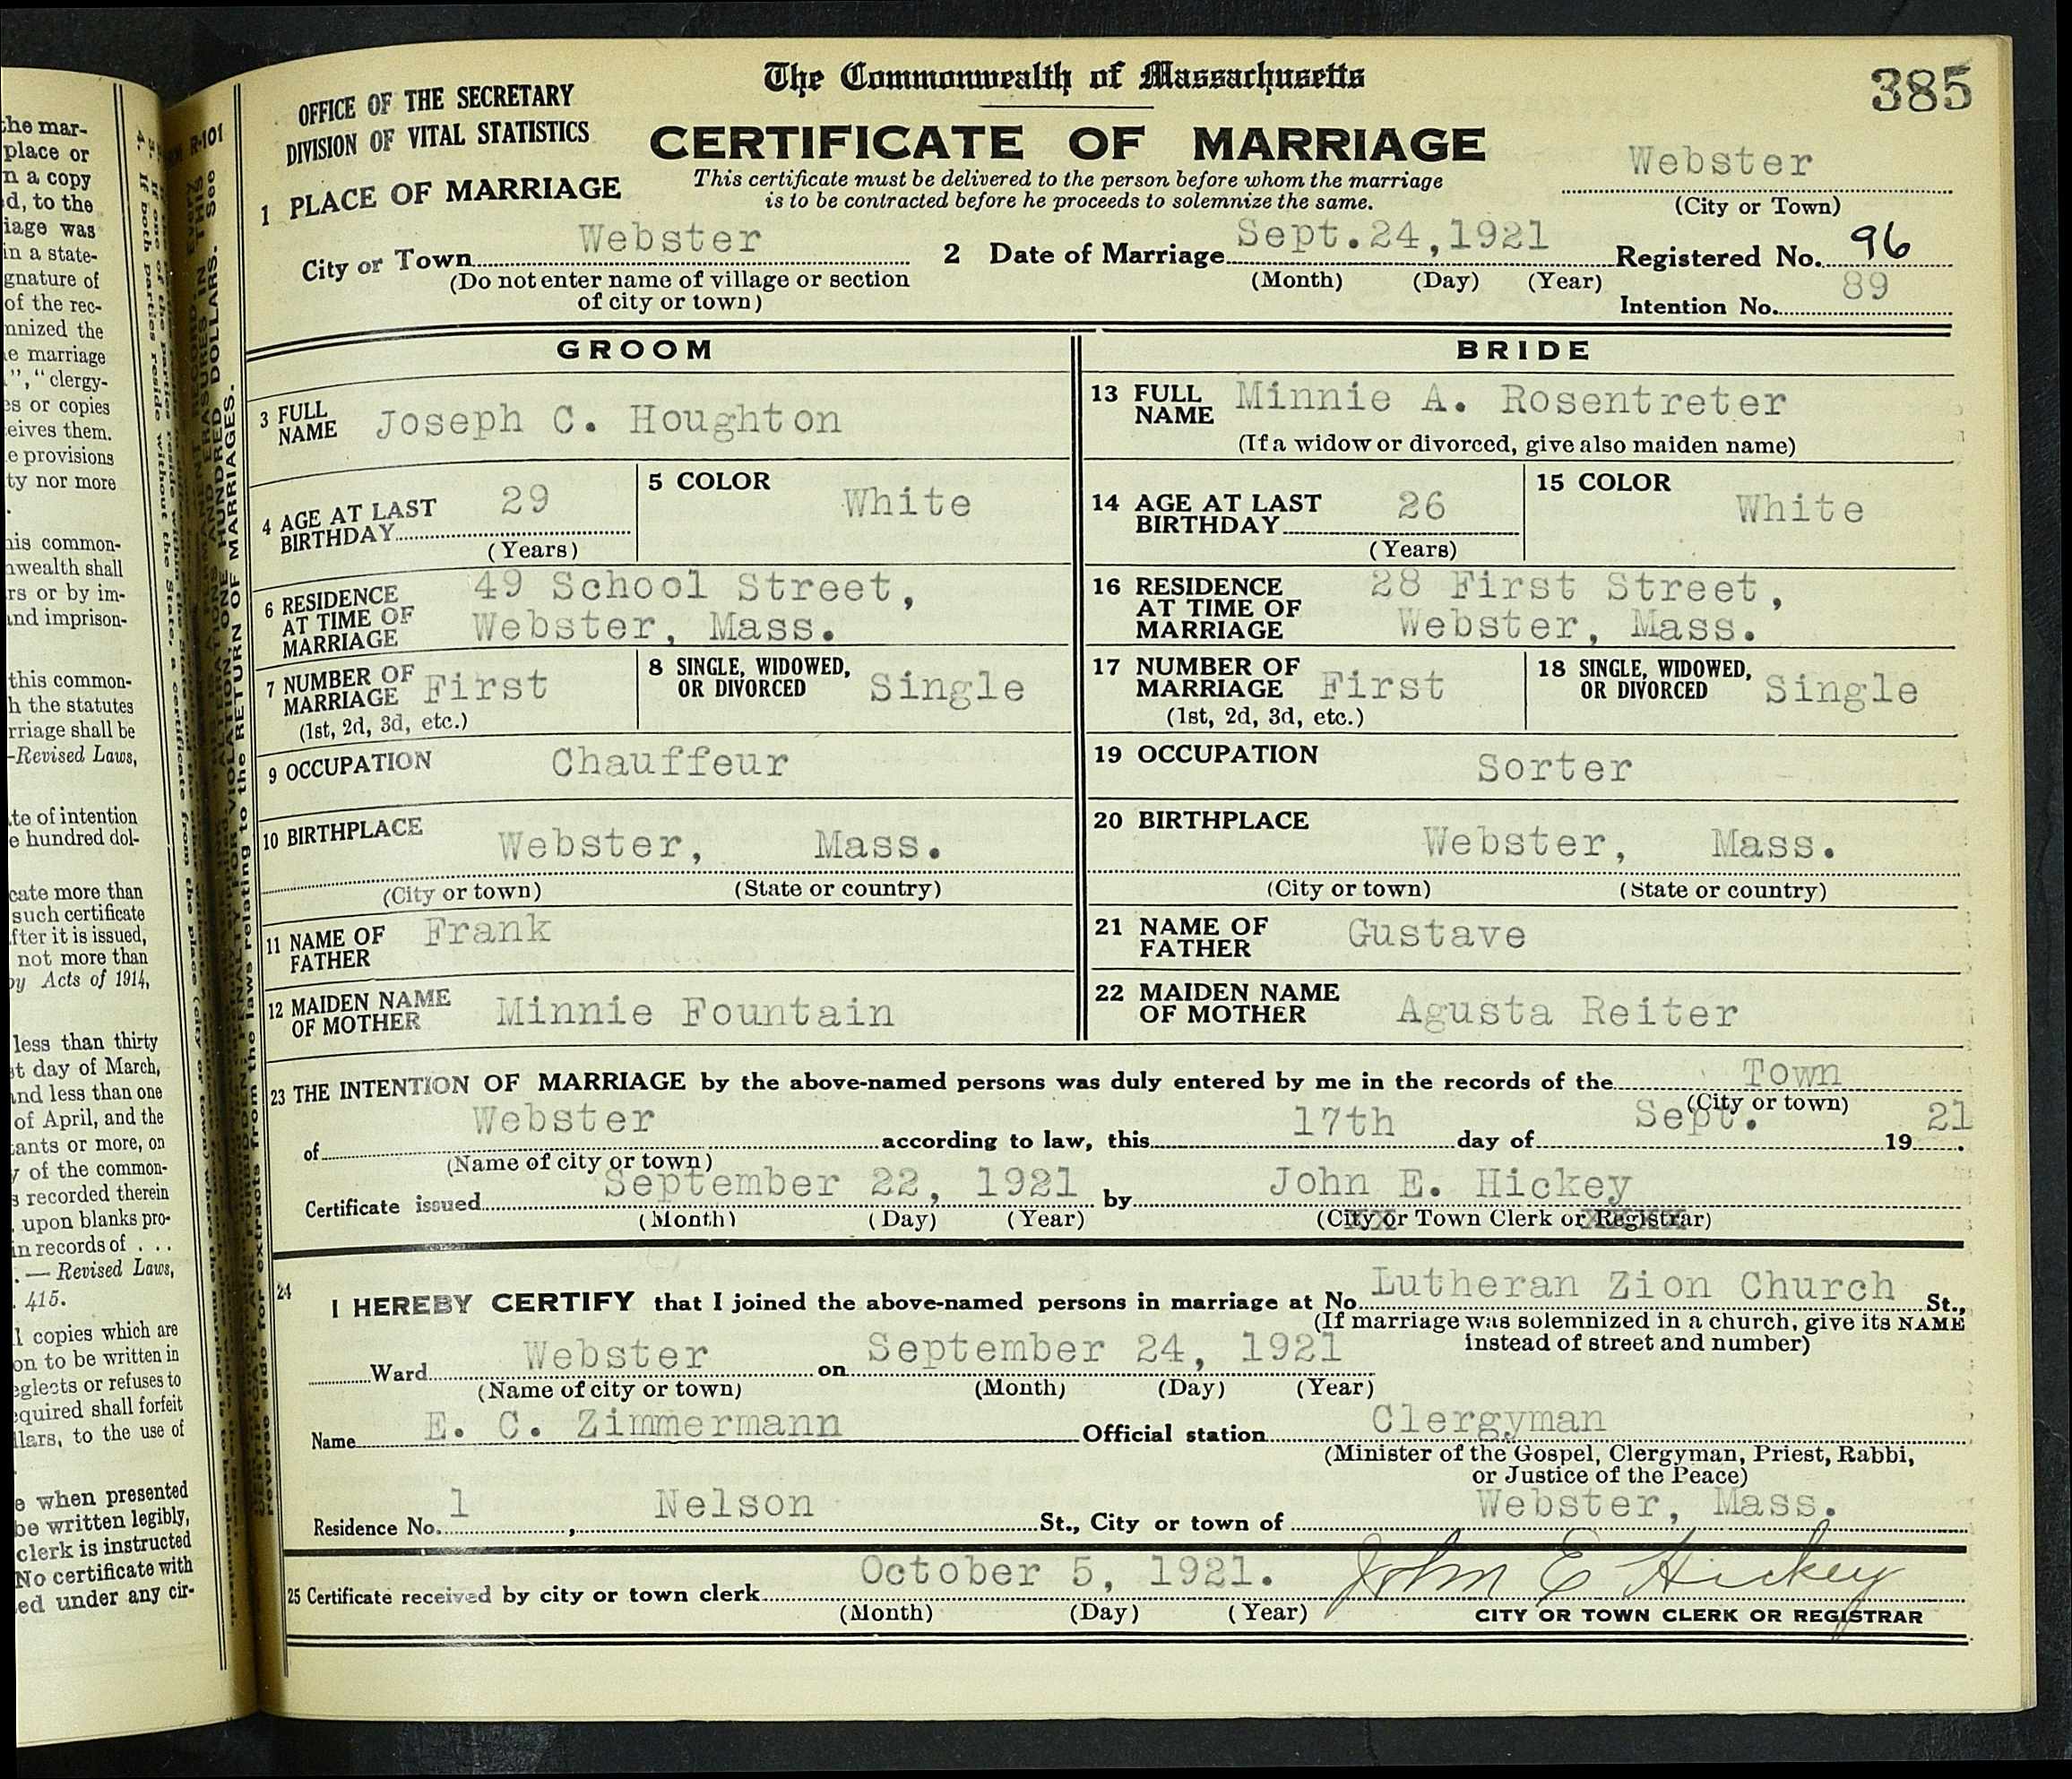 The Commonwealth of Massachusetts
385
OFFICE OF THE SECRETARY
DIVISION OF VITAL STATISTICS
CERTIFICATE OF MARRIAGE
This certificate must be delivered to the person before whom the marriage
is to be contracted before he proceeds to solemnize the same.
Webster
(City or Town)
1 PLACE OF MARRIAGE
City or Town Webster
(Do not enter name of village or section
of city or town)
2 Date of Marriage Sept.24,1921
(Month) (Day) (Year)
Registered No. 96
Intention No. 89
GROOM
3 FULL NAME Joseph C. Houghton
4 AGE AT LAST BIRTHDAY 29
(Years)
5 COLOR White
6 RESIDENCE AT TIME OF MARRIAGE 49 School Street,
Webster, Mass.
7 NUMBER OF MARRIAGE First
(1st, 2d, 3d, etc.)
8 SINGLE, WIDOWED, OR DIVORCED Single
9 OCCUPATION Chauffeur
10 BIRTHPLACE Webster, Mass.
(City or town) (State or country)
11 NAME OF FATHER Frank
12 MAIDEN NAME OF MOTHER Minnie Fountain
BRIDE
13 FULL NAME Minnie A. Rosentreter
(If a widow or divorced, give also maiden name)
14 AGE AT LAST BIRTHDAY 26
(Years)
15 COLOR White
16 RESIDENCE AT TIME OF MARRIAGE 28 First Street,
Webster, Mass.
17 NUMBER OF MARRIAGE First
(1st, 2d, 3d, etc.)
18 SINGLE, WIDOWED, OR DIVORCED Single
19 OCCUPATION Sorter
20 BIRTHPLACE Webster, Mass.
(City or town) (State or country)
21 NAME OF FATHER Gustave
22 MAIDEN NAME OF MOTHER Agusta Reiter
23 THE INTENTION OF MARRIAGE by the above-named persons was duly entered by me in the records of the Town
(City or town)
of Webster according to law, this 17th day of Sept. 1921.
(Name of city or town)
Certificate issued September 22, 1921 by John E. Hickey
(Month) (Day) (Year) (City or Town Clerk or Registrar)
24 I HEREBY CERTIFY that I joined the above-named persons in marriage at No. Lutheran Zion Church St.,
(If marriage was solemnized in a church, give its NAME
instead of street and number)
Ward Webster on September 24, 1921
(Name of city or town) (Month) (Day) (Year)
Name E. C. Zimmermann Official station Clergyman
(Minister of the Gospel, Clergyman, Priest, Rabbi,
or Justice of the Peace)
Residence No. 1, Nelson St., City or town of Webster, Mass.
25 Certificate received by city or town clerk October 5, 1921. John E Hickey
(Month) (Day) (Year) CITY OR TOWN CLERK OR REGISTRAR
R-101
the mar-
place or
n a copy
d, to the
iage was
in a state-
gnature of
of the rec-
mnized the
e marriage
", "clergy-
es or copies
eives them.
e provisions
ty nor more
his common-
wealth shall
rs or by im-
and imprison-
this common-
h the statutes
rriage shall be
-Revised Laws,
te of intention
e hundred dol-
cate more than
such certificate
fter it is issued,
not more than
by Acts of 1914,
less than thirty
st day of March,
and less than one
of April, and the
tants or more, on
y of the common-
s recorded therein
upon blanks pro-
in records of . . .
. — Revised Laws,
. 415.
l copies which are
on to be written in
eglects or refuses to
equired shall forfeit
llars, to the use of
e when presented
be written legibly,
clerk is instructed
No certificate with
ed under any cir-